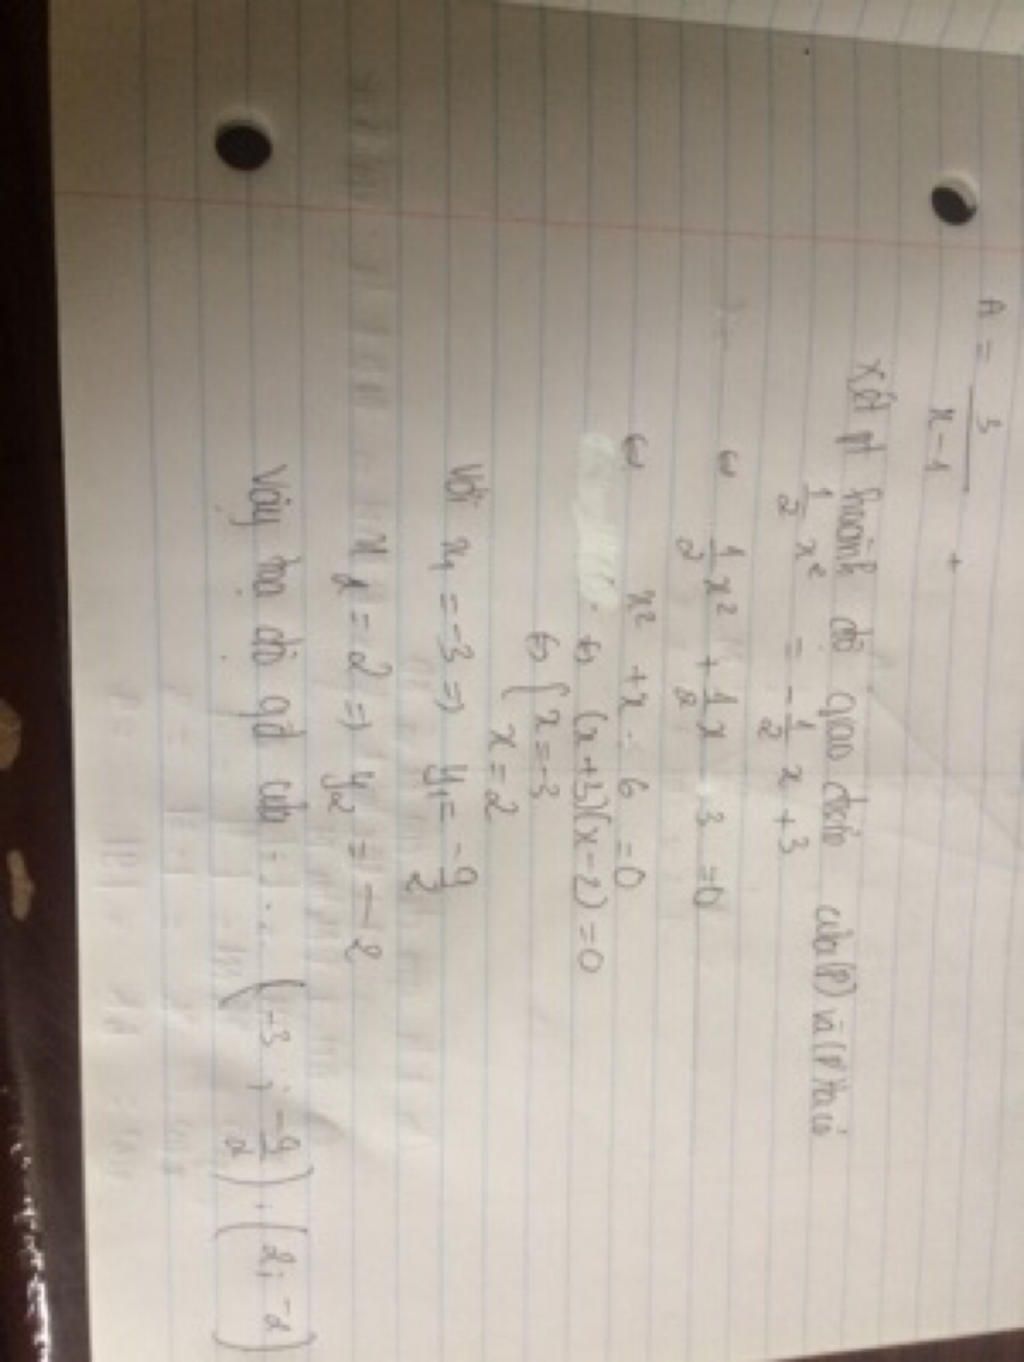 A = 3/(x-1) +
xét pt hoành độ giao điểm của (P) và (P) ta có
1/2 x² = -1/2 x + 3
⇔ 1/2 x² + 1/2 x - 3 = 0
⇔ x² + x - 6 = 0
⇔ (x+3)(x-2) = 0
⇔ { x = -3
x = 2
Với x₁ = -3 ⇒ y₁ = -9/2
x₂ = 2 ⇒ y₂ = -2
Vậy toạ độ gđ của : ... (-3 ; -9/2) , (2; -2)